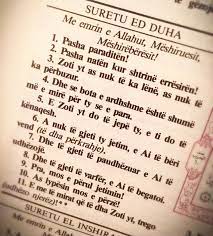 SURETU ED DUHA
Me emrin e Allahut, Mëshiruesit,
Mëshirëbërësit!
1. Pasha paraditën!
2. Pasha natën kur shtrinë errësirën!
3. Zoti yt as nuk të ka lënë, as nuk të
ka përbuzur.
4. Dhe se bota e ardhshme është shumë
më e mirë për ty se e para.
5. E Zoti yt do të japë ty, e ti do të
kënaqesh.
6. A nuk të gjeti ty jetim, e Ai të bëri
vend (të dha përkrahje).
7. Dhe të gjeti të paudhëzuar e Ai të
udhëzoj.
8. Dhe të gjeti të varfër, e Ai të begatoi.
9. Pra, mos e përul jetimin!
10. As lypësin mos e përzë!
11. E me të mirat që të dha Zoti yt, trego
(udhëzo njerëz).
SURETU EL INSHIRA
Me emrin e Allahut,